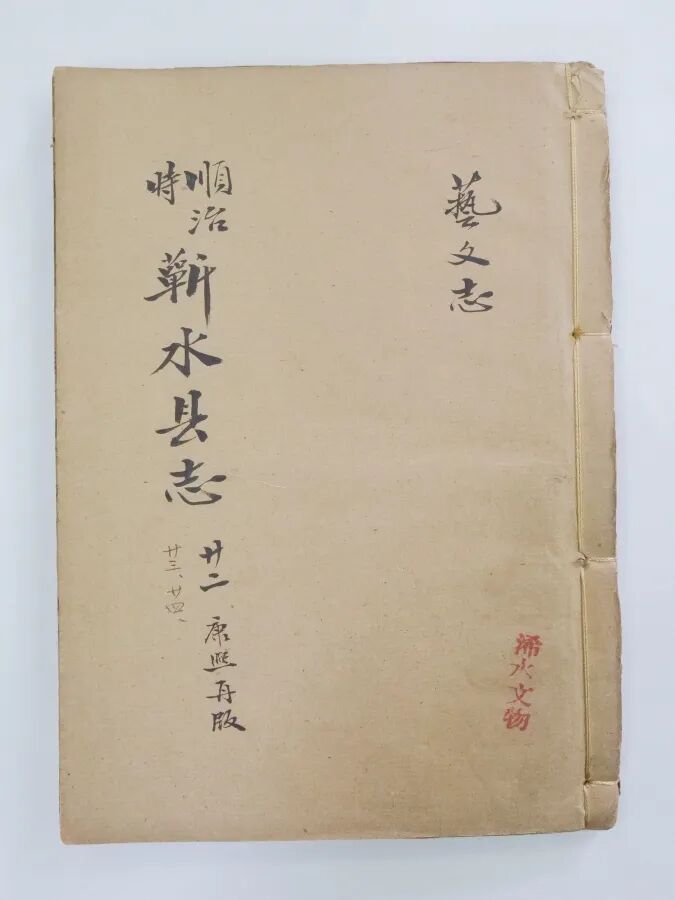 藝文志
順治時
蘄水县志
廿二
廿三、廿四、
康熙再版
浠水文物